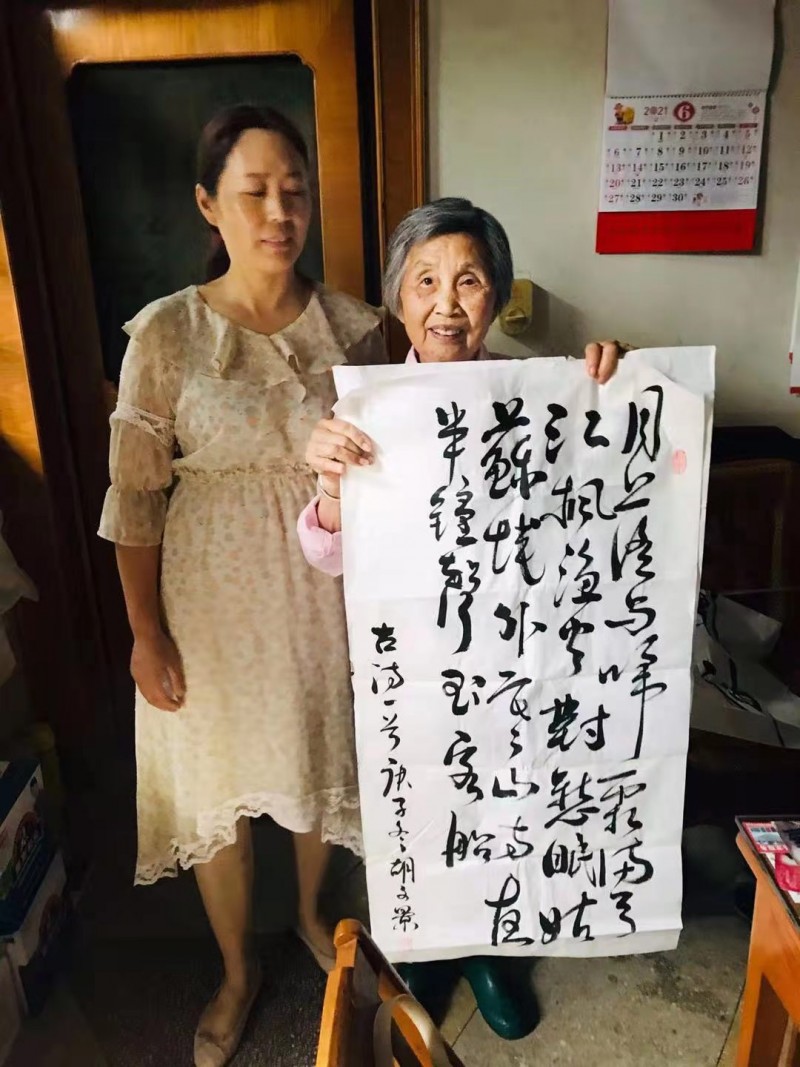 2021 6
1 2 3 4 5
6 7 8 9 10 11 12
13 14 15 16 17 18 19
20 21 22 23 24 25 26
27 28 29 30
月落乌啼霜满天
江枫渔火對愁眠姑
蘇城外寒山寺夜
半鐘聲到客船
古诗一首庚子冬胡文景